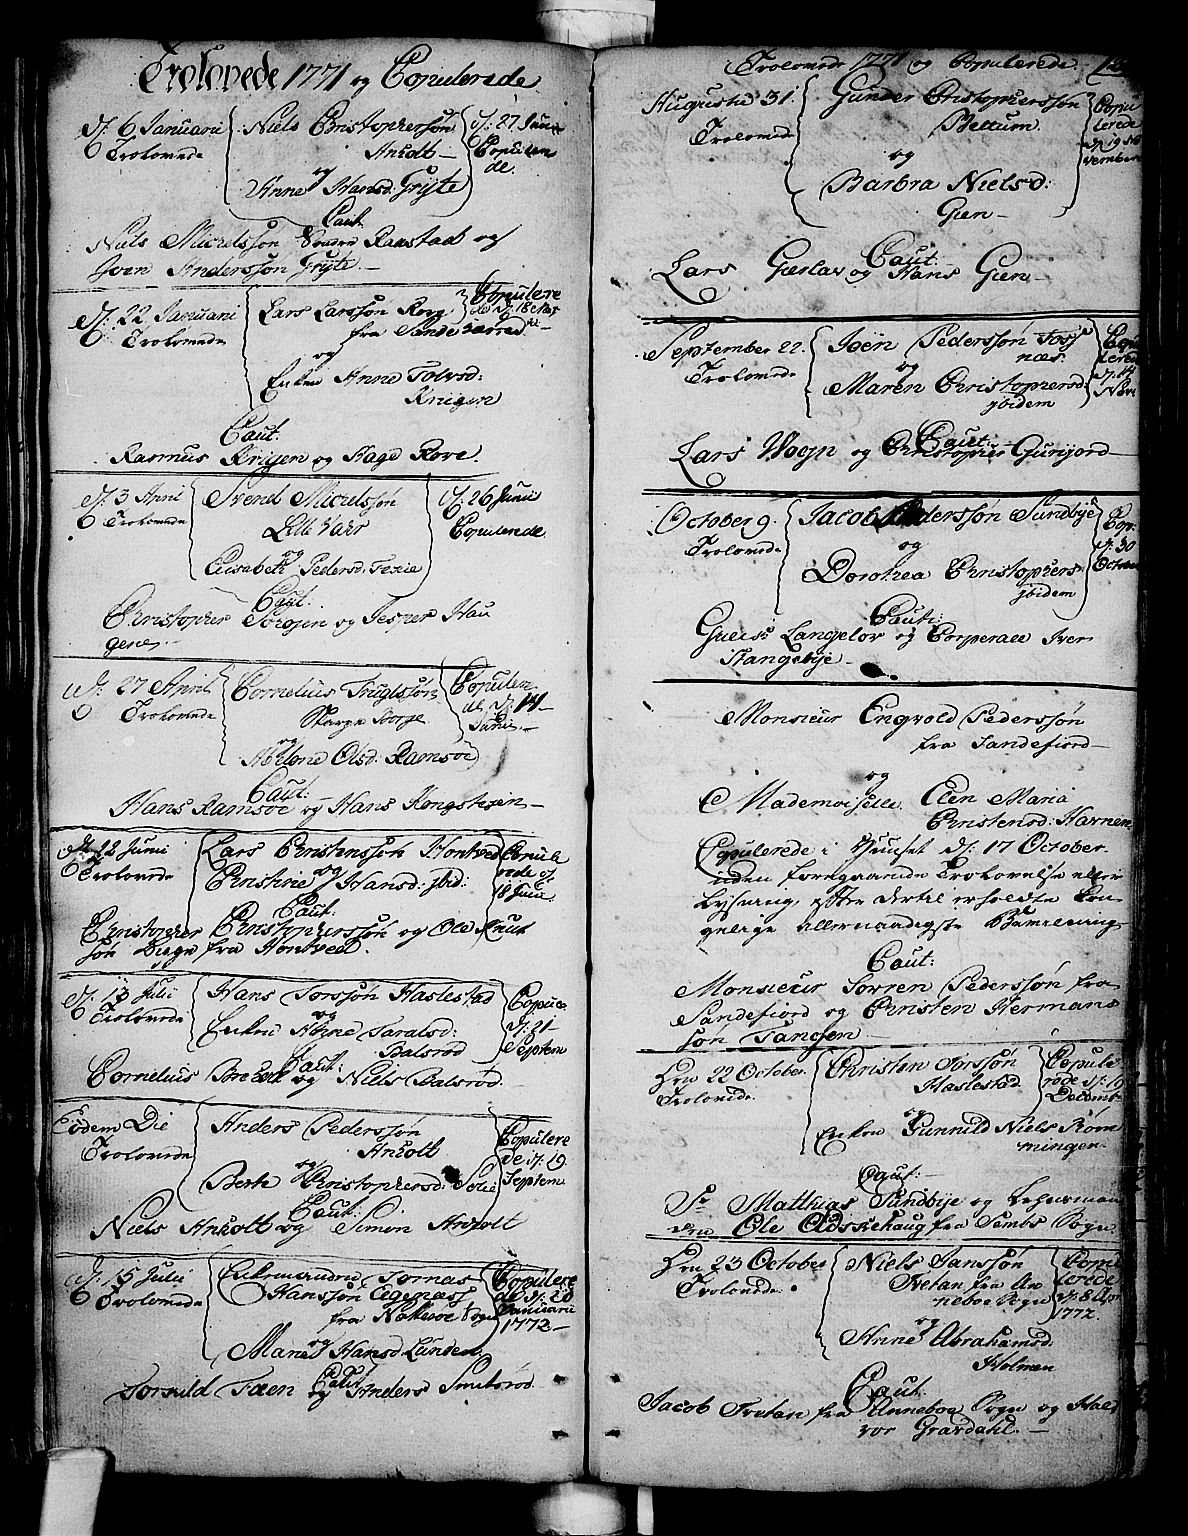 Trolovede 1771 og Copulerede
d. 6 Januarii
Trolovede
Niels Christophersøn
Anholt
og
Anne Hansd: Gryte
d. 27 Junii
Copulere
de.
Caut:
Niels Michelssøn Ramstad og
Iver Anderssøn Gryte.
d. 22 Januarii
Trolovede
Lars Larssøn Rove
fra Sandeherred
og
Enken Anne Tolvsd:
Krugen
Copulere
de d. 18
Caut:
Rasmus Krugen og Hage Rove.
d. 3 April
Trolovede
Svend Michelssøn
Lille Vaer
og
Elisabeth Pedersd:
d. 26 Junii
Copulerede
Caut.
Christopher og Jesper Hau
gene.
d. 27 April
Trolovede
Cornelius Truglssøn
Borge
og
Helene Olsd: Ramsøe
Copulere
de d. 14
Junii.
Caut:
Hans Ramsøe og Hans Kongshein
d. 12 Junii
Trolovede
Lars Christenssøn Hontved
og
Christine Hansd: ibid:
Copule
rede d.
18 Junii
Caut:
Christopher Christopherssøn og Ole Knut
søn fra Hontved.
d. 13 Julii
Trolovede
Hans Torssøn Haslestad
og
Enken Anne Taralsd:
Balsrød
Copule
d. 21
Septem
Caut:
Cornelius og Niels Balsrød.
Eodem Die
Trolovede
Anders Pederssøn
Anholt
og
Berte Christophersd: Solie
Copulere
de d. 19
Septem
Caut:
Niels Anholt og Simon Anholt
d. 15 Julii
Trolovede
Enkemanden Tornas
Hanssøn Egenæss
fra Nøtterøe Sogn
og
Maren Hansd: Lunden
Copulere
de d. 20
Januarii
1772
Caut:
Torkild Foen og Anders Smidsrød.
Trolovede 1771 og Copulerede.
Augusti 31.
Trolovede
Gunder Christopherssøn
Bettum
og
Barbra Nielsd:
Gien
Copu
lerede
d. 19 No
vembr
Caut:
Lars Gierløv og Hans Gien
September 22.
Trolovede
Joen Pederssøn Foss
næs.
og
Maren Christophersd:
ibidem
Copu
lerede
d. 14
Nov.
Caut:
Lars Wogn og Christopher Gurijord
October 9.
Trolovede
Jacob Pederssøn Sundbye
og
Dorothea Christophers:
ibidem
Cop:
d. 30
October
Caut:
Gulich Langeløv og Corporal Iver
Stangebye
Monsieur Engvold Pederssøn
fra Sandefiord
og
Mademoiselle Elen Maria
Christensd: Havnen
Copulerede i Huuset d. 17 October
uden foregaaende Trolovelse eller
Lysning, efter dertil erholdte Kon
gelige allernaadigste Bevilning
Caut:
Monsieur Sørren Pederssøn fra
Sandefiord og Christen Hermans
søn Tangen
Den 22 October
Trolovede
Christen Torssøn
Haslestad
og
Enken Gunnild Niels Røm
mingen
Copule
rede d. 19
Decemb:
Caut:
Sr Matthias Sundbye og Lehnsman
den Ole Adsserhaug fra Sembs Sogn.
Den 23 October
Trolovede
Niels Janssøn
Tvetan fra An
neboe Sogn
og
Anne Abrahamsd:
Holmen
Copu
lerede
d. 8 Apr
1772.
Caut:
Jacob Tvetan fra Anneboe Sogn og Hal
vor Gravdahl.